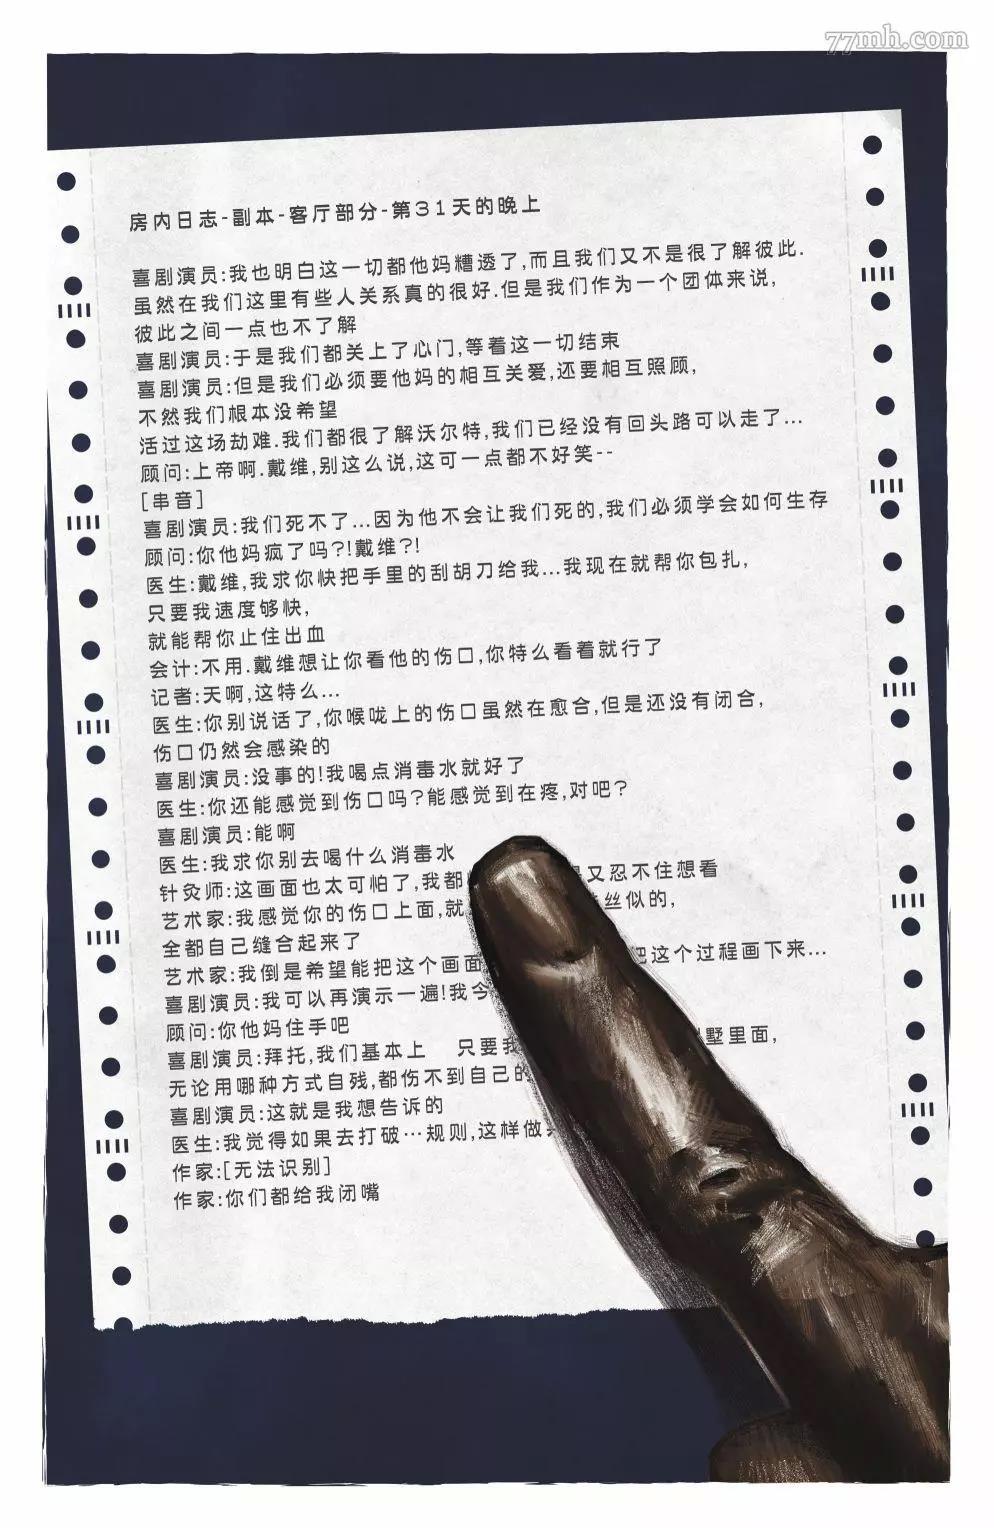 77mh.com
房内日志-副本-客厅部分-第31天的晚上
喜剧演员:我也明白这一切都他妈糟透了,而且我们又不是很了解彼此.
虽然在我们这里有些人关系真的很好.但是我们作为一个团体来说,
彼此之间一点也不了解
喜剧演员:于是我们都关上了心门,等着这一切结束
喜剧演员:但是我们必须要他妈的相互关爱,还要相互照顾,
不然我们根本没希望
活过这场劫难.我们都很了解沃尔特,我们已经没有回头路可以走了...
顾问:上帝啊.戴维,别这么说,这可一点都不好笑--
[串音]
喜剧演员:我们死不了...因为他不会让我们死的,我们必须学会如何生存
顾问:你他妈疯了吗?!戴维?!
医生:戴维,我求你快把手里的刮胡刀给我...我现在就帮你包扎,
只要我速度够快,
就能帮你止住出血
会计:不用.戴维想让你看他的伤口,你特么看着就行了
记者:天啊,这特么...
医生:你别说话了,你喉咙上的伤口虽然在愈合,但是还没有闭合,
伤口仍然会感染的
喜剧演员:没事的!我喝点消毒水就好了
医生:你还能感觉到伤口吗?能感觉到在疼,对吧?
喜剧演员:能啊
医生:我求你别去喝什么消毒水
针灸师:这画面也太可怕了,我都 又忍不住想看
艺术家:我感觉你的伤口上面,就 丝似的,
全都自己缝合起来了
艺术家:我倒是希望能把这个画面 把这个过程画下来...
喜剧演员:我可以再演示一遍!我今
顾问:你他妈住手吧
喜剧演员:拜托,我们基本上 只要我 墅里面,
无论用哪种方式自残,都伤不到自己的
喜剧演员:这就是我想告诉的
医生:我觉得如果去打破…规则,这样做
作家:[无法识别]
作家:你们都给我闭嘴